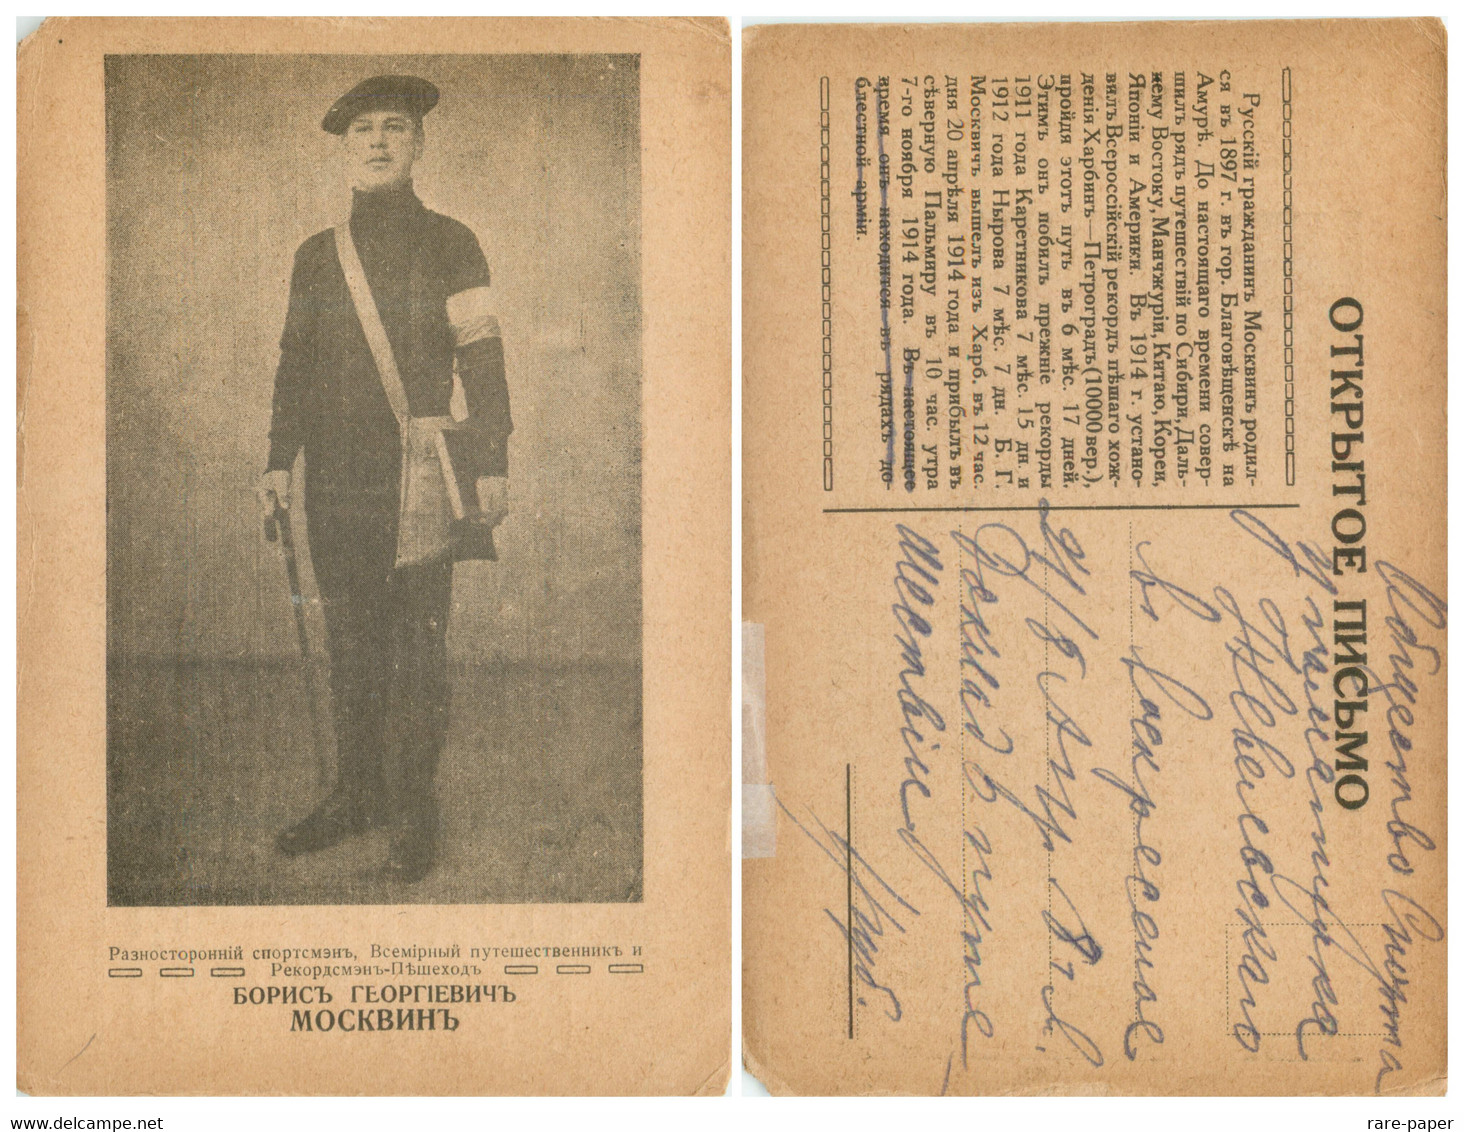 Разносторонній спортсмэнъ, Всемірный путешественникъ и
Рекордсмэнъ-Пѣшеходъ
БОРИСЪ ГЕОРГІЕВИЧЪ
МОСКВИНЪ
ОТКРЫТОЕ ПИСЬМО
Русскій гражданинъ Москвинъ родил-
ся въ 1897 г. въ гор. Благовѣщенскѣ на
Амурѣ. До настоящаго времени совер-
шилъ рядъ путешествій по Сибири, Даль-
нему Востоку, Манчжуріи, Китаю, Кореи,
Японіи и Америки. Въ 1914 г. устано-
вилъ Всероссійскій рекордъ пѣшаго хож-
денія Харбинъ—Петроградъ (10000 вер.),
пройдя этотъ путь въ 6 мѣс. 17 дней.
Этимъ онъ побилъ прежніе рекорды
1911 года Каретникова 7 мѣс. 15 дн. и
1912 года Нырова 7 мѣс. 7 дн. Б. Г.
Москвичъ вышелъ изъ Харб. въ 12 час.
дня 20 апрѣля 1914 года и прибылъ въ
сѣверную Пальмиру въ 10 час. утра
7-го ноября 1914 года. Въ настоящее
время онъ находится въ рядахъ до-
блестной арміи.
Общество Спорта
Невельского
въ Воскресенье
Докладъ о путе-
шествіи
delcampe.net
rare-paper